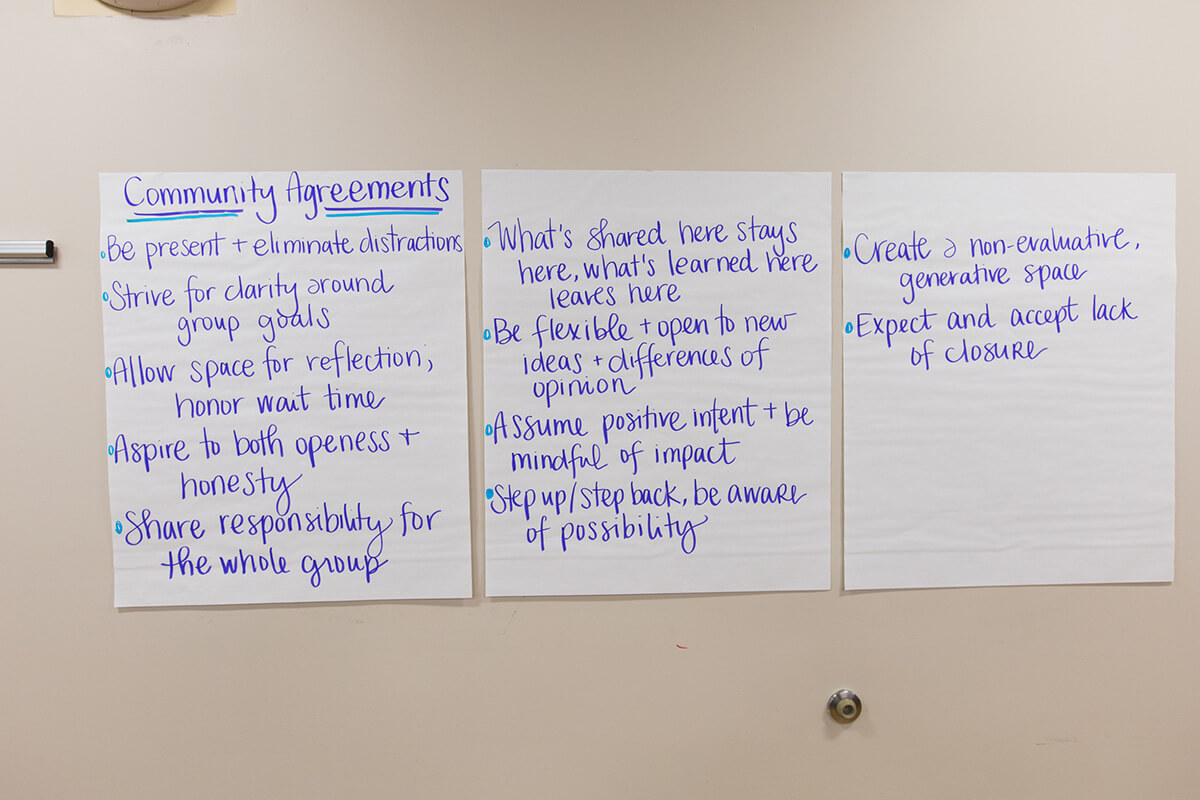 Community Agreements
Be present + eliminate distractions
Strive for clarity around
group goals
Allow space for reflection;
honor wait time
Aspire to both openess +
honesty
Share responsibility for
the whole group
What's shared here stays
here, what's learned here
leaves here
Be flexible + open to new
ideas + differences of
opinion
Assume positive intent + be
mindful of impact
Step up/step back, be aware
of possibility
Create a non-evaluative,
generative space
Expect and accept lack
of closure